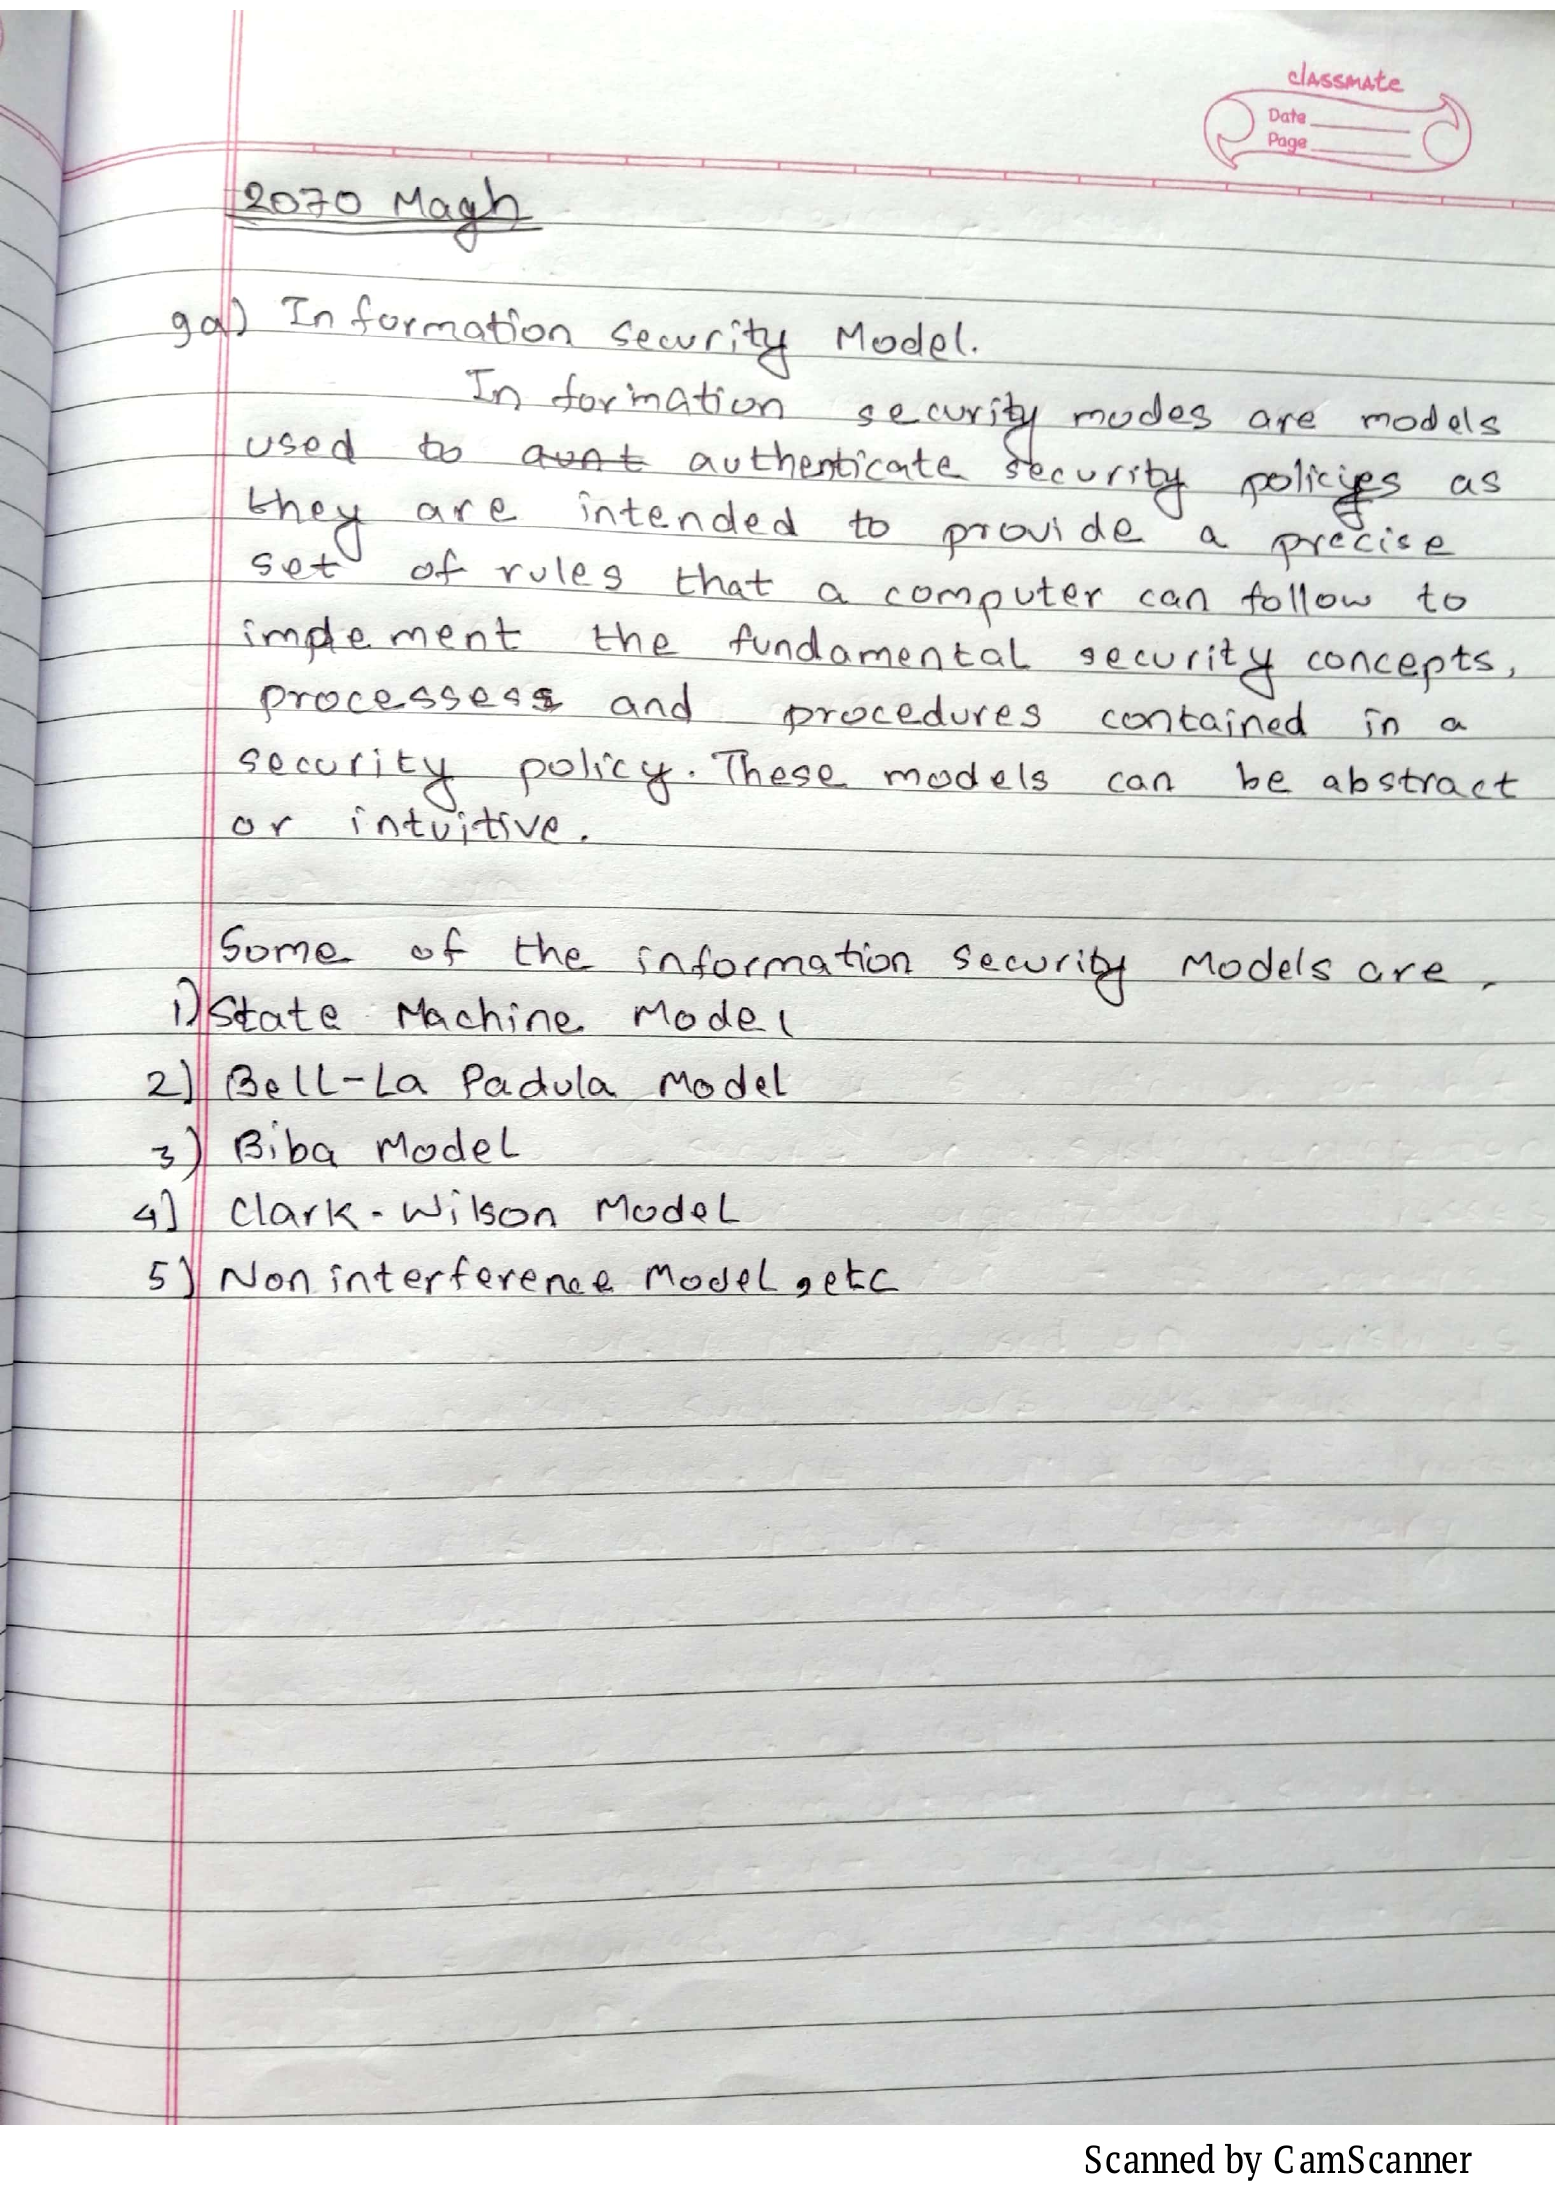 classmate
Date
Page
2070 Magh
9a) Information Security Model.
Information security modes are models
used to aunt authenticate security policies as
they are intended to provide a precise
set of rules that a computer can follow to
implement the fundamental security concepts,
processes and procedures contained in a
security policy. These models can be abstract
or intuitive.
Some of the information security Models are,
1) State Machine Model
2) Bell-La Padula Model
3) Biba Model
4) Clark-Wilson Model
5) Non interference Model, etc
Scanned by CamScanner